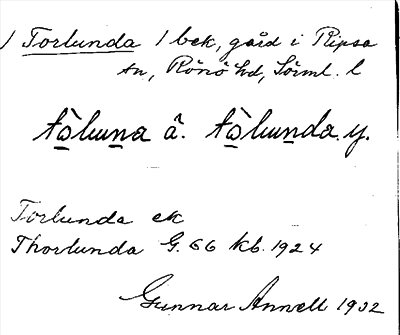 / Torlunda / bek, gård i Ripsa
sn, Rönö hd, Sörml. l
tò̱luṉa â. tò̱luṉda. y.
Torlunda ek
Thorlunda G. 66 kb. 1924
Gunnar Annell 1932